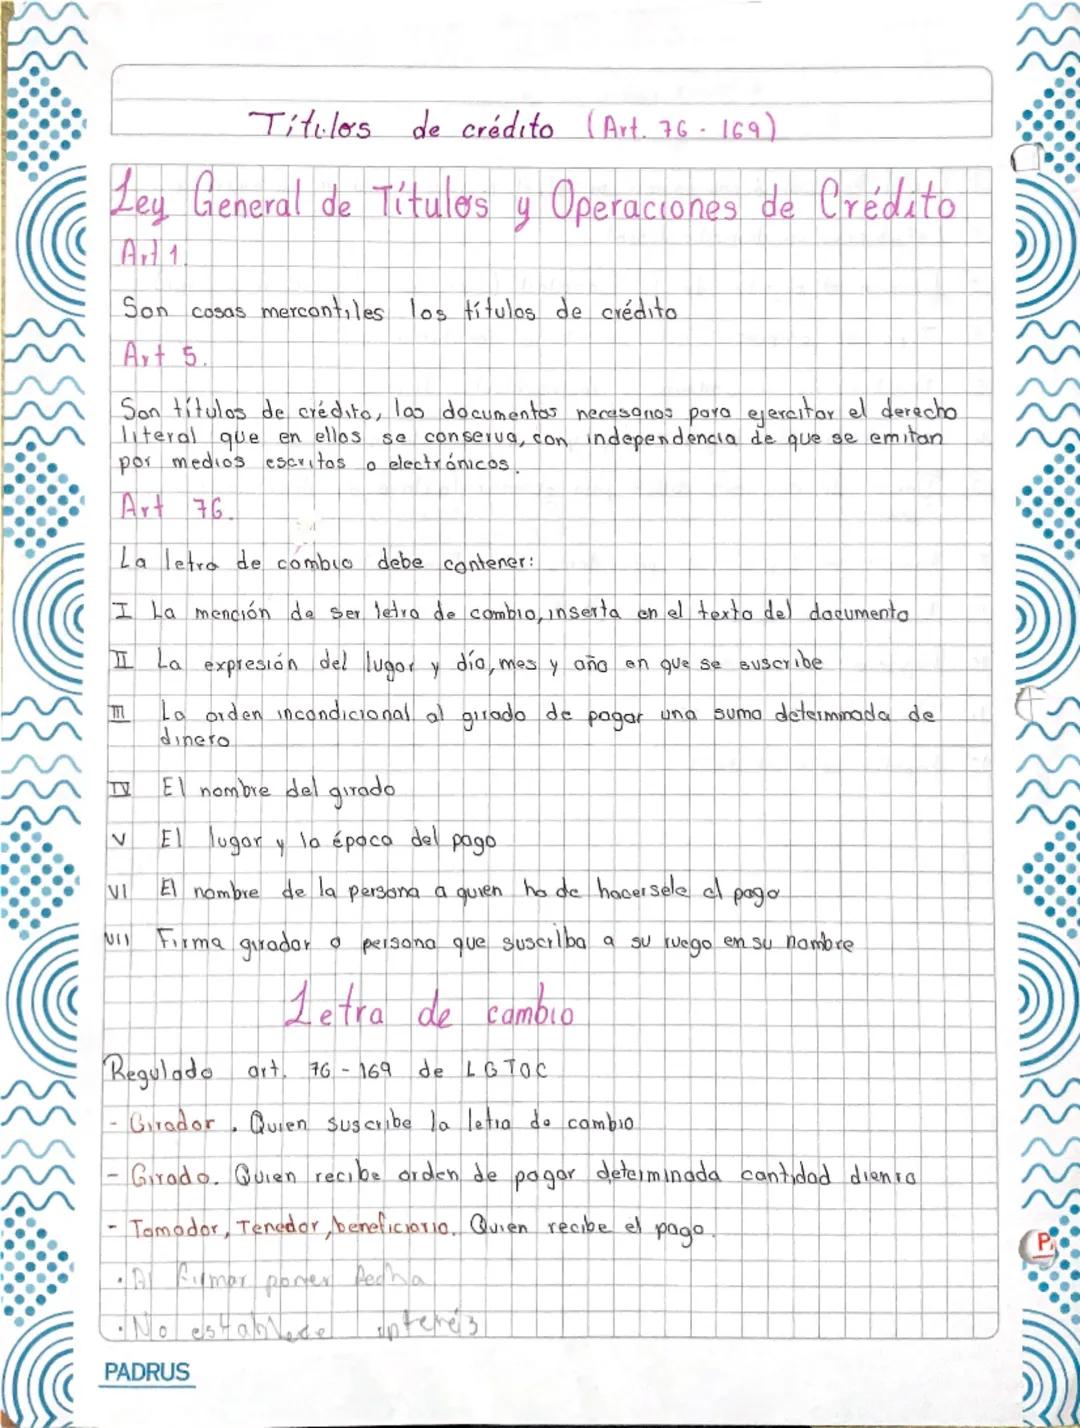 Títulos de crédito (Art. 76 - 169)
Ley General de Títulos y Operaciones de Crédito
Art 1.
Son cosas mercantiles los títulos de crédito
Art 5.
Son títulos de crédito, los documentos necesarios para ejercitar el derecho
literal que en ellos se conserva, con independencia de que se emitan
por medios escritos o electrónicos.
Art 76.
La letra de cambio debe contener:
I La mención de ser letra de cambio, inserta en el texto del documento
II La expresión del lugar y día, mes y año en que se suscribe
III La orden incondicional al girado de pagar una suma determinada de
dinero
IV El nombre del girado
V El lugar y la época del pago
VI El nombre de la persona a quien ha de hacersele el pago
VII Firma girador o persona que suscriba a su ruego en su nombre
Letra de cambio
Regulado art. 76 - 169 de LGTOC
- Girador. Quien suscribe la letra de cambio
- Girado. Quien recibe orden de pagar determinada cantidad dienro
- Tomador, Tenedor, beneficiario. Quien recibe el pago.
· Al firmar poner fecha
· No establece interés
P
PADRUS